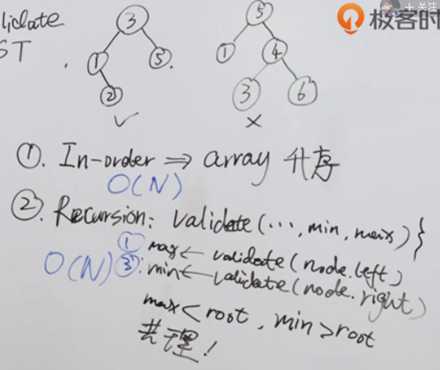 极客时
Validate
BST
3
1
5
2
✓
5
1
4
3
6
×
①. In-order ⇒ array 升序
O(N)
②. Recursion: validate(..., min, max) }
① max ← validate(node.left)
O(N) ③ min ← validate(node.right)
max < root, min > root